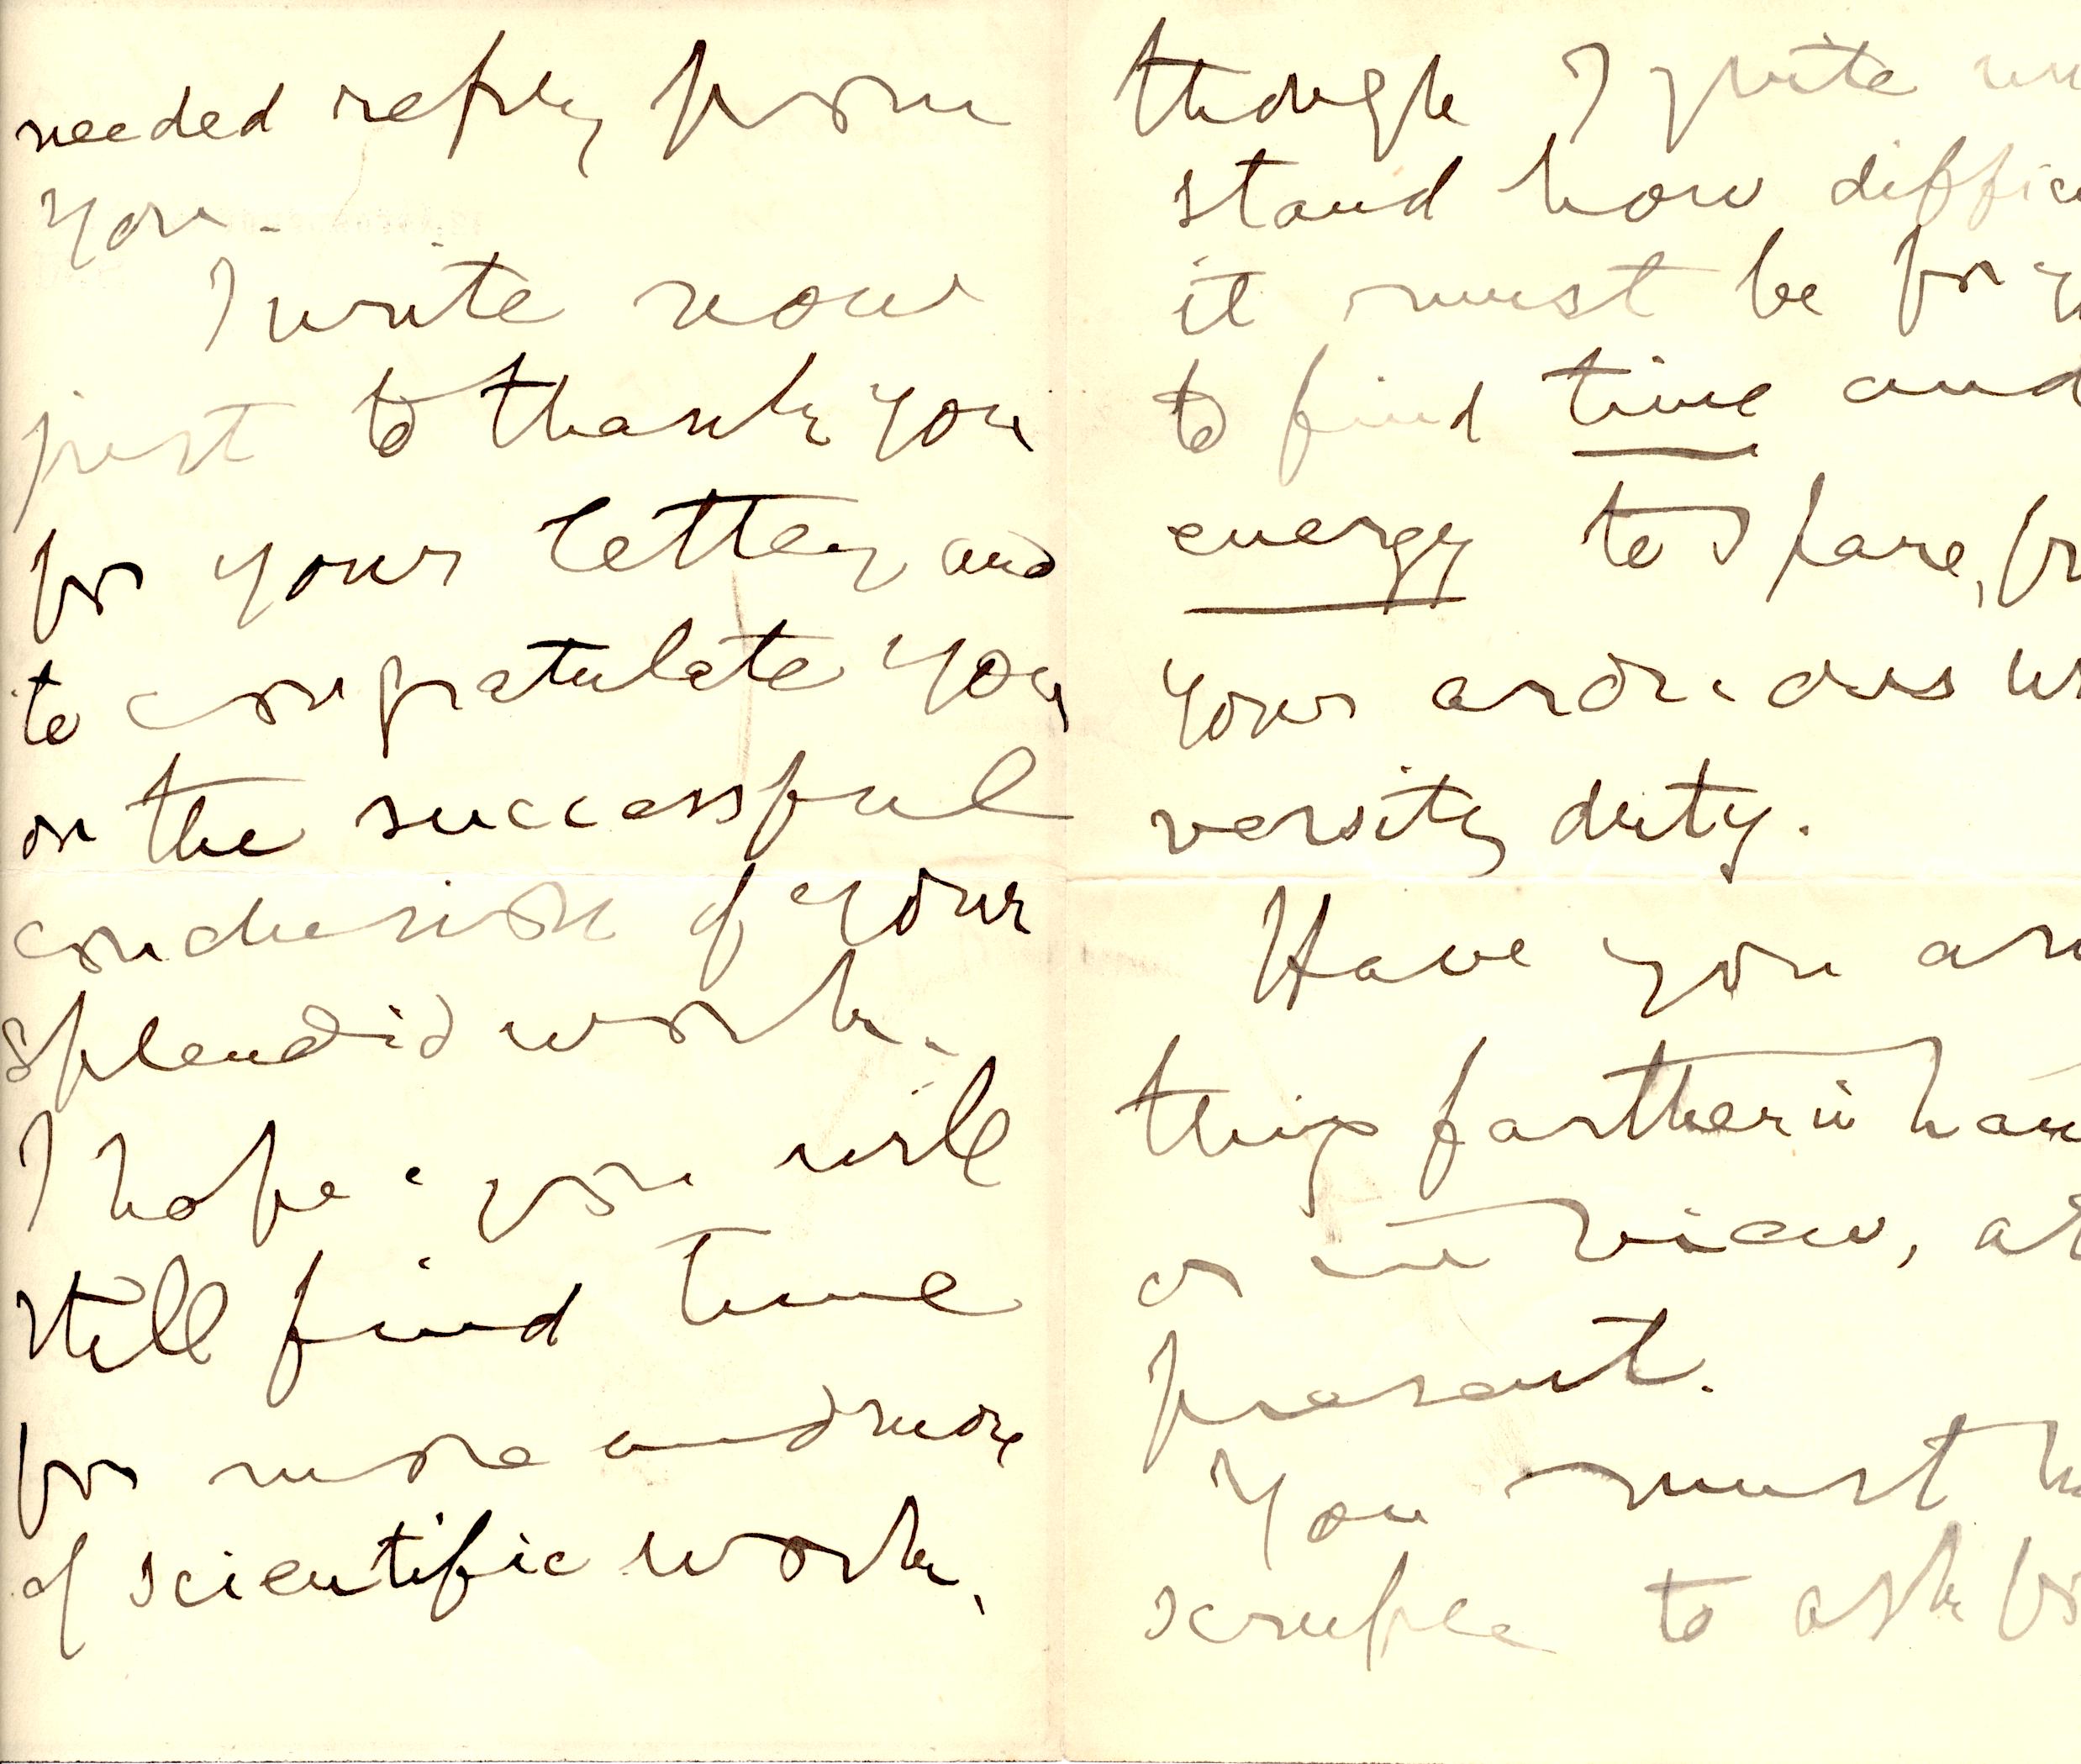 needed reply from
you.
I write now
just to thank you
for your letter, and
to congratulate you
on the successful
conclusion of your
splendid work.
I hope you will
still find time
for more and more
of scientific work,
though I quite un
stand how difficu
it must be for y
to find time and
energy to spare, fr
your arduous un
versity duty.
Have you an
thing farther in han
or in view, at
present.
You must h
scruple to ask fo